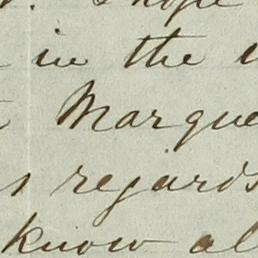 hope
in the
Marque
regards
know al